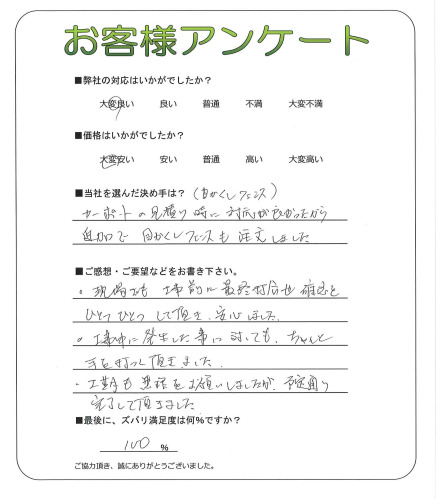 お客様アンケート
■弊社の対応はいかがでしたか？
大変良い 良い 普通 不満 大変不満
■価格はいかがでしたか？
大変安い 安い 普通 高い 大変高い
■当社を選んだ決め手は？(目かくしフェンス)
カーポートの見積り時に対応が良かったから
追加で目かくしフェンスも注文しました
■ご感想・ご要望などをお書き下さい。
・現場でも工事前に最終打合せ確認と
ひとつひとつして頂き、安心しました。
・工事中に発生した事に対しても、ちゃんと
手を打って頂きました。
・工期も無理をお願いしましたが、予定通り
完了して頂きました
■最後に、ズバリ満足度は何%ですか？
100 %
ご協力頂き、誠にありがとうございました。